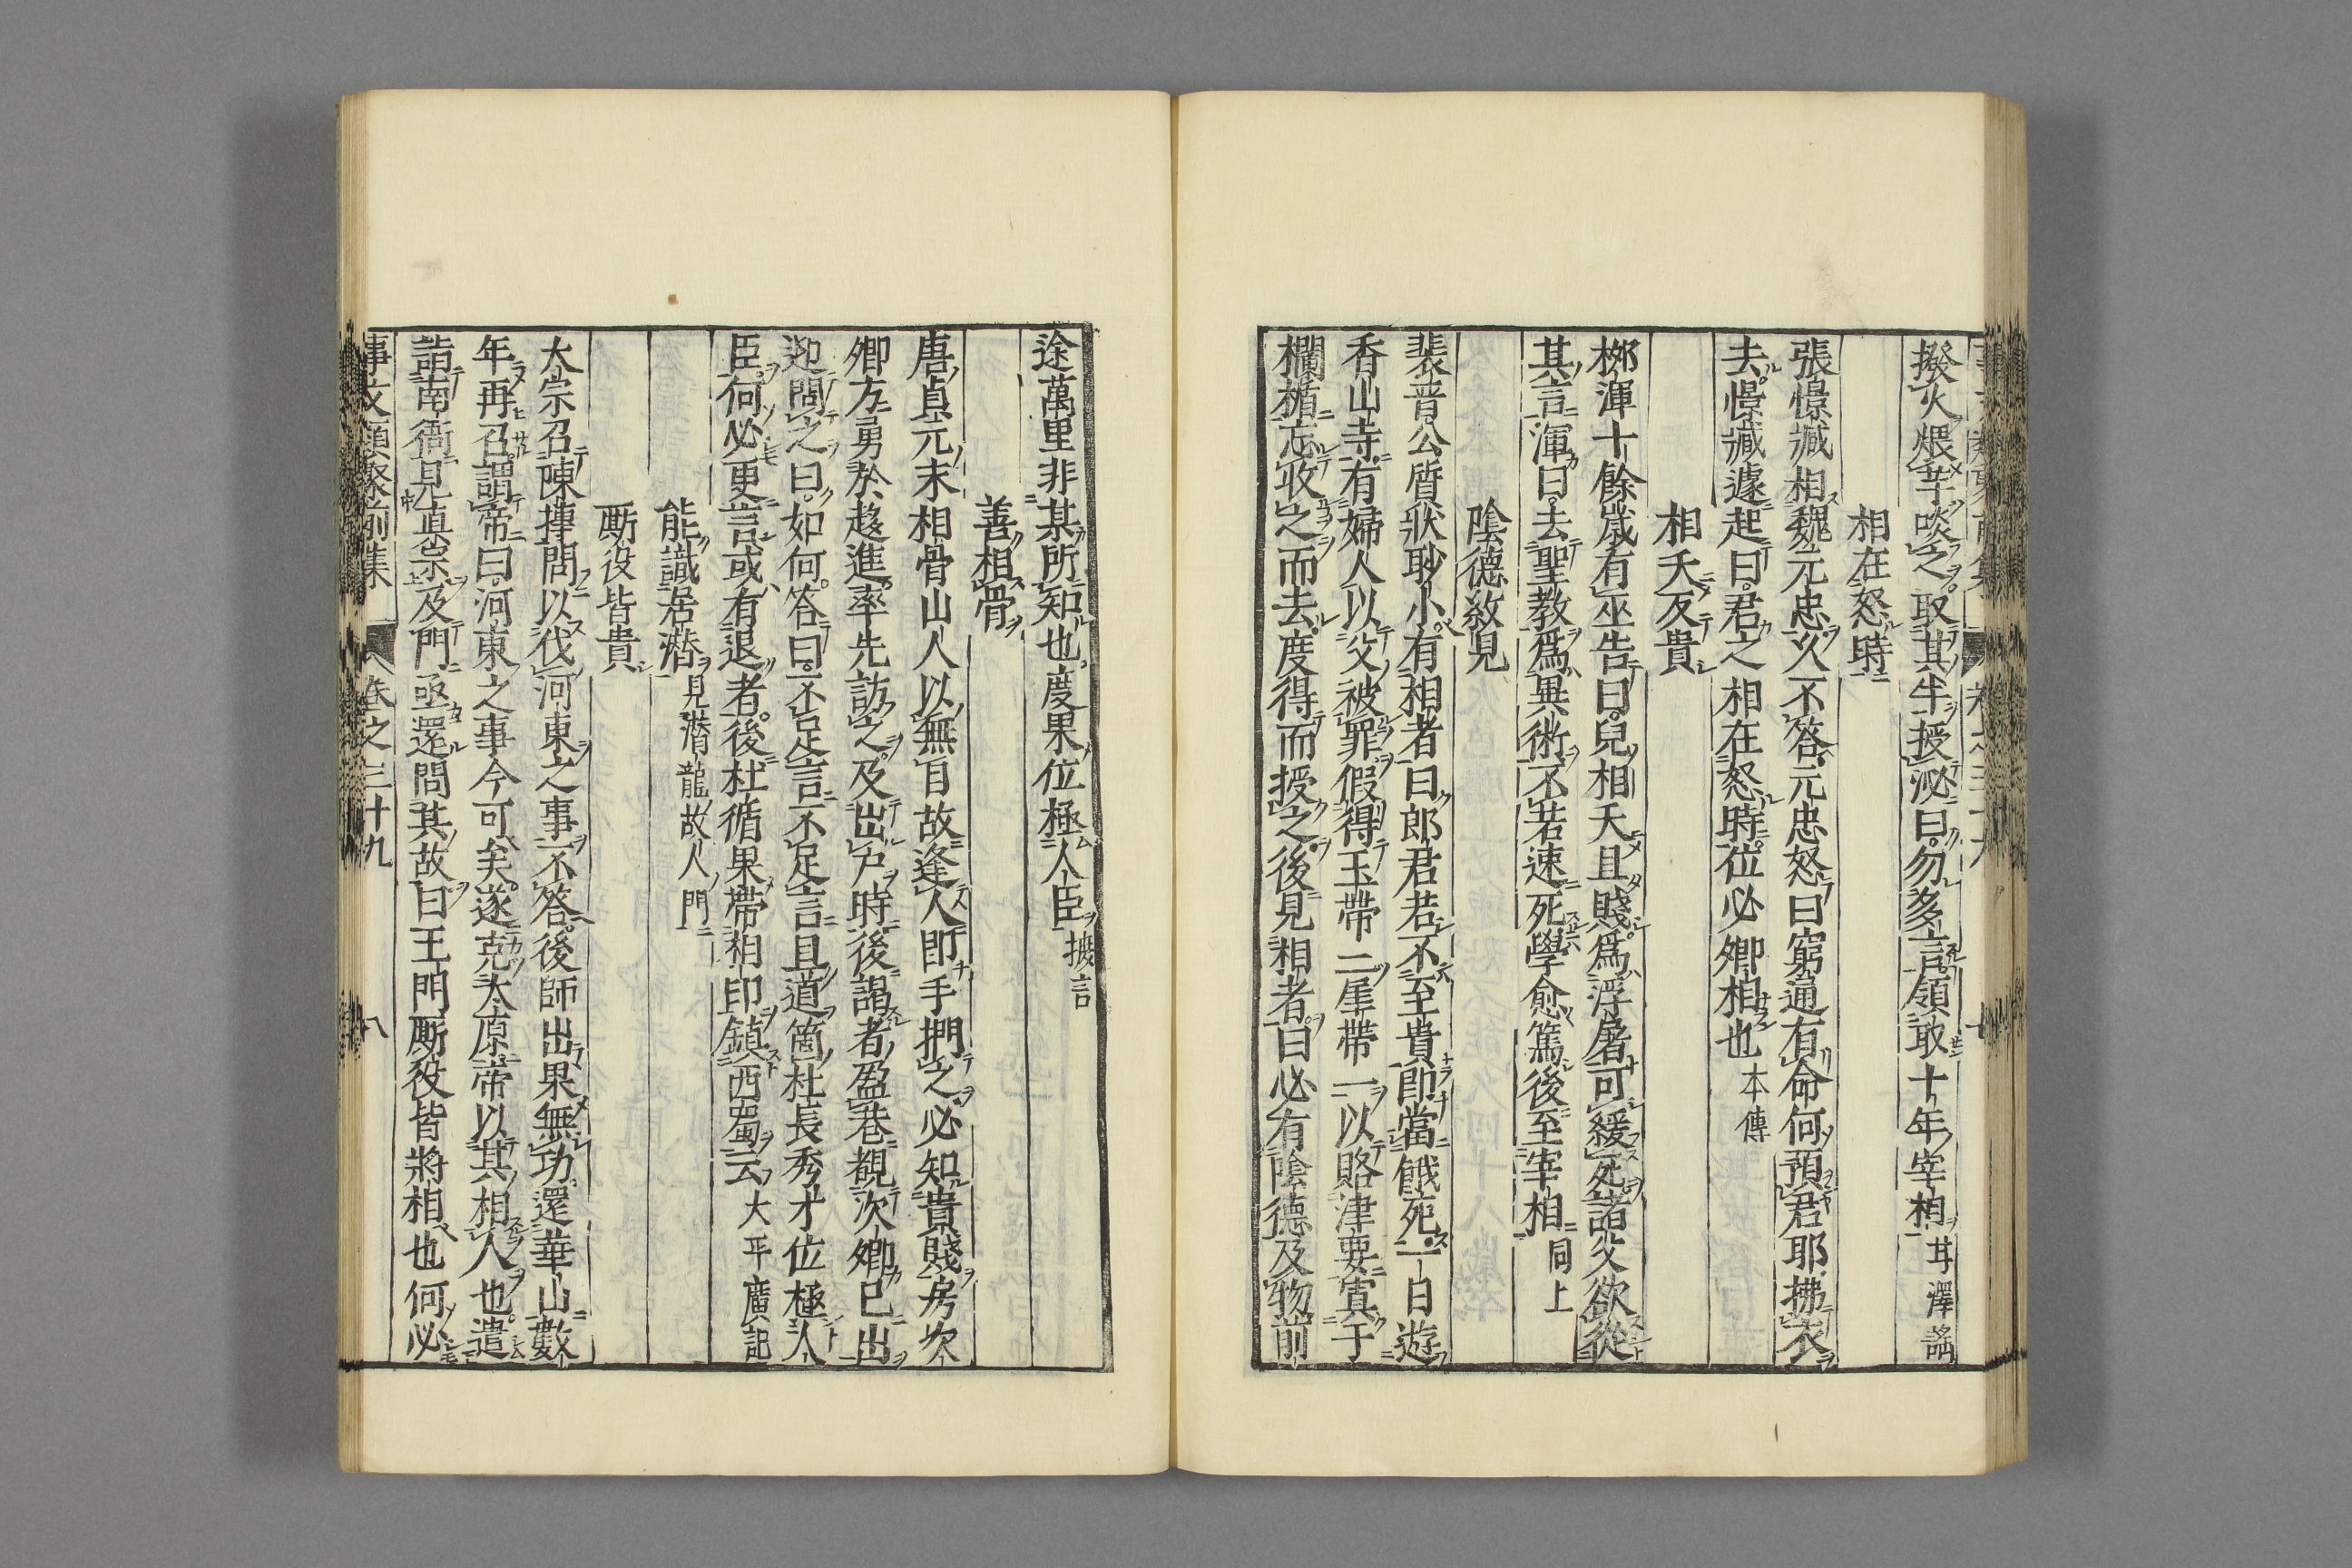 撥火煨芋啖之取其半授泌曰勿多言領取十年宰相甘澤謠
相在怒時
張憬藏相魏元忠久不答元忠怒曰窮通有命何預君耶拂衣
去憬藏遽起曰君之相在怒時位必卿相也本傳
相夭反貴
栁渾十餘歲有巫告曰兒相夭且賤爲浮屠可緩死諸父欲從
其言渾曰去聖教爲異術不若速死學愈篤後至宰相同上
陰德敘見
裴晉公質狀眇小有相者曰郎君若不至貴卽當餓死一日遊
香山寺有婦人以父被罪假得玉帶二犀帶一以賂津要寘于
欄楯忘收之而去度得而授之後見相者曰必有陰德及物前
途萬里非某所知也度果位極人臣摭言
善相骨
唐貞元末相骨山人以無目故逢人卽手捫之必知貴賤房次
卿方勇於趍進率先訪之及出户時後謁者盈巷覩次卿已出
迎問之曰如何答曰不足言不足言且道箇杜長秀才位極人
臣何必更言或有退者後杜循果帶相印鎮西蜀云大平廣記
能識居潛見潛龍故人門
厮役皆貴
太宗召陳摶問以伐河東之事不答後師出果無功還華山數
年再召謂帝曰河東之事今可矣遂克太原帝以其相人也遣
詣南衙見真宗及門亟還問其故曰王門厮役皆將相也何必
事文類聚前集 卷之三十九 八